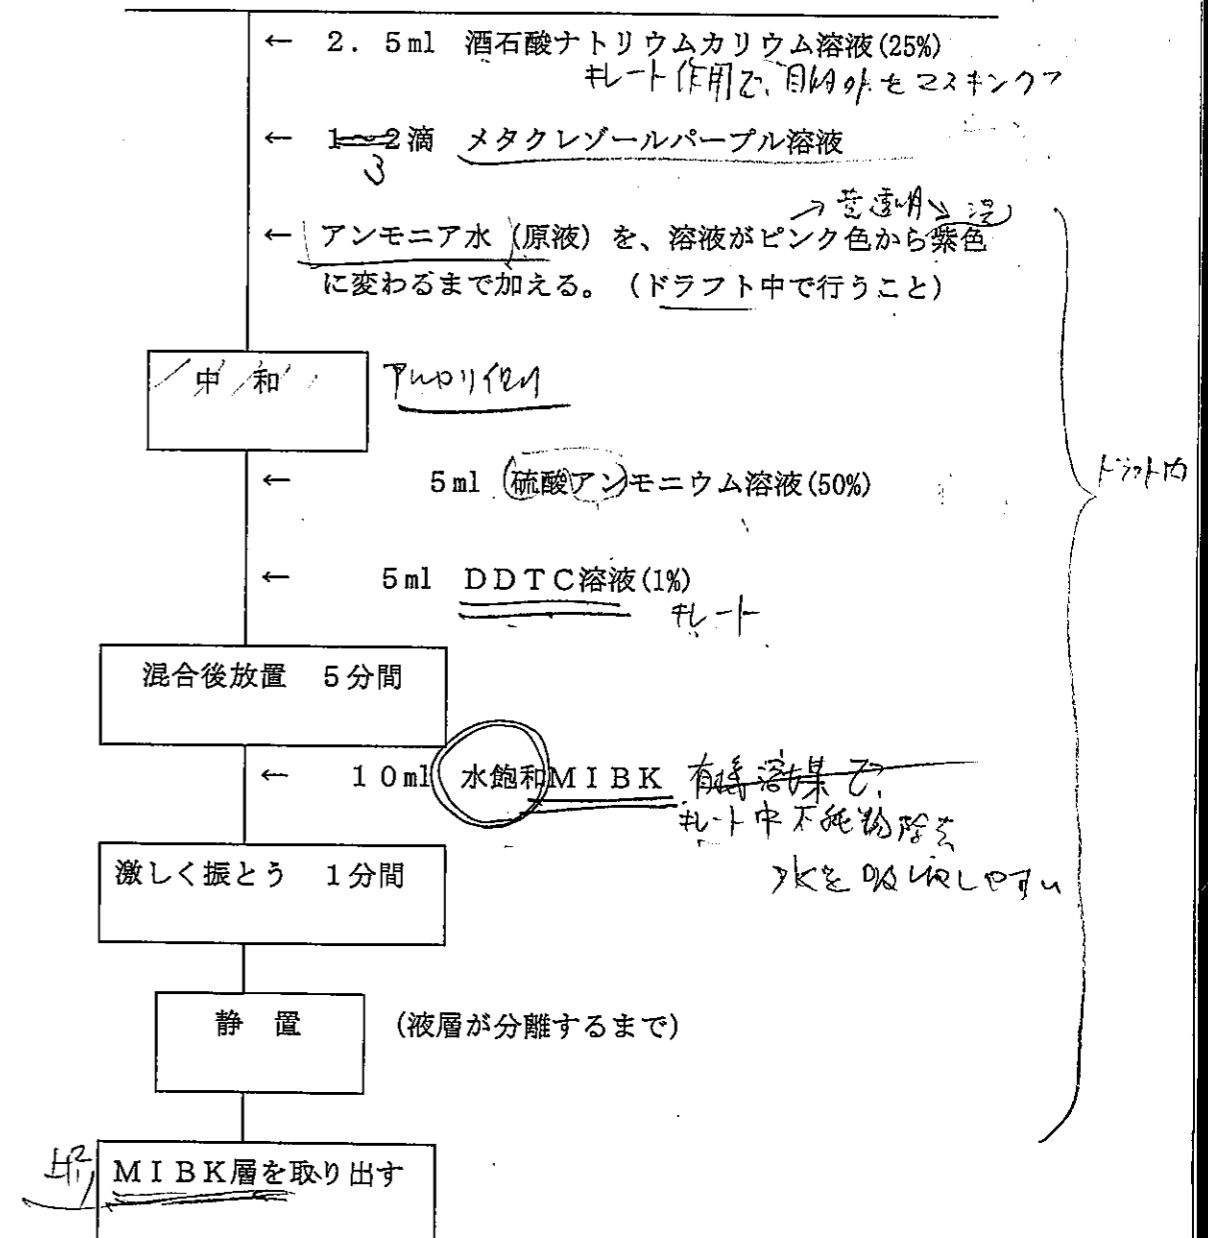 ← 2.5ml 酒石酸ナトリウムカリウム溶液(25%)
キレート作用で、目的外をマスキング
← 1~2滴 メタクレゾールパープル溶液
3
→黄透明↘
← アンモニア水(原液)を、溶液がピンク色から紫色
に変わるまで加える。(ドラフト中で行うこと)
中和 アルカリ化
← 5ml 硫酸アンモニウム溶液(50%)
ドラフト内
← 5ml DDTC溶液(1%)
キレート
混合後放置 5分間
← 10ml 水飽和MIBK 有機溶媒で、
キレート中不純物除去
激しく振とう 1分間
水を吸収しやすい
静置 (液層が分離するまで)
MIBK層を取り出す